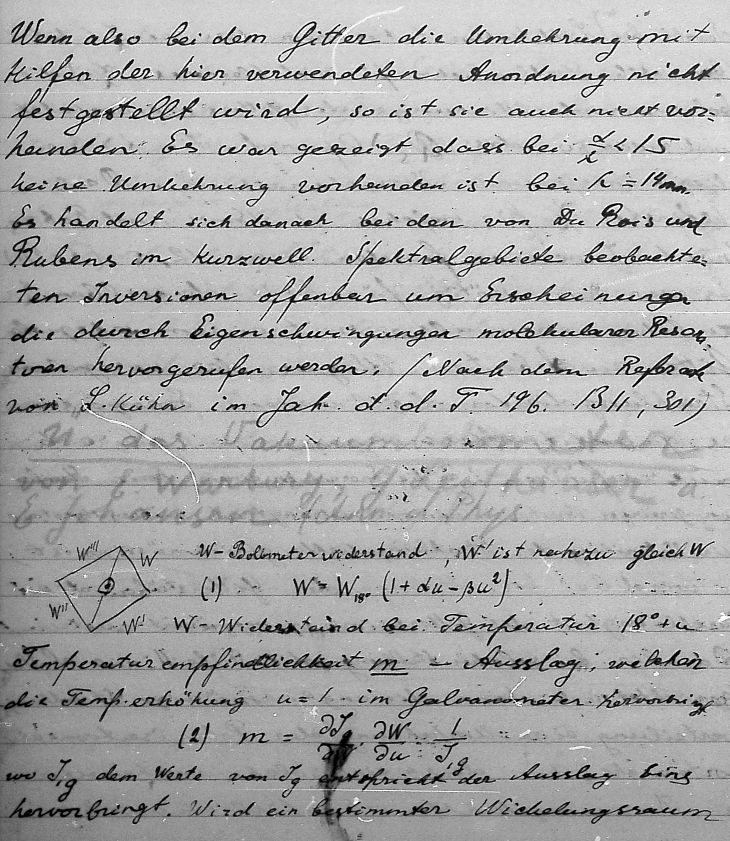 Wenn also bei dem Gitter die Umkehrung mit
Hilfen der hier verwendeten Anordnung nicht
festgestellt wird, so ist sie auch nicht vor=
handen. Es war gezeigt, dass bei α/λ < 15
keine Umkehrung vorhanden ist bei λ = 14mm
Es handelt sich danach bei den von Du Bois und
Rubens im kurzwell. Spektralgebiete beobachte=
ten Inversionen offenbar um Erscheinungen
die durch Eigenschwingungen molekularer Reson=
toren hervorgerufen werden. (Nach dem Referate
von L. Kühn im Jah. d. d. T. 196. 1311, 301)
U. das Vakuumbolometer
von E. Warburg, G. Leithäuser u.
E. Johansen Ann. d. Phys.
W''' W
W'' W'
W – Bolometerwiderstand, W' ist nahezu gleich W
(1) W = W₁₈° (1 + αu – βu²)
W – Widerstand bei Temperatur 18° + u
Temperaturempfindlichkeit m – Ausslag, welchen
die Temp.erhöhung u = 1 im Galvanometer hervorbringt
(2) m = ∂Jg/∂W · ∂W/∂u · 1/J₁g
wo J₁g dem Werte von Jg entspricht der Ausslag Eins
hervorbringt. Wird ein bestimmter Wickelungsraum